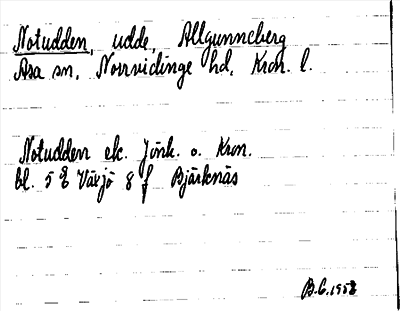 Notudden, udde, Allgunneberg
Asa sn, Norrvidinge hd, Kron. l.
Notudden ek. Jönk. o. Kron.
bl. 5 Växjö 8 f Bjärknäs
B.G. 1958